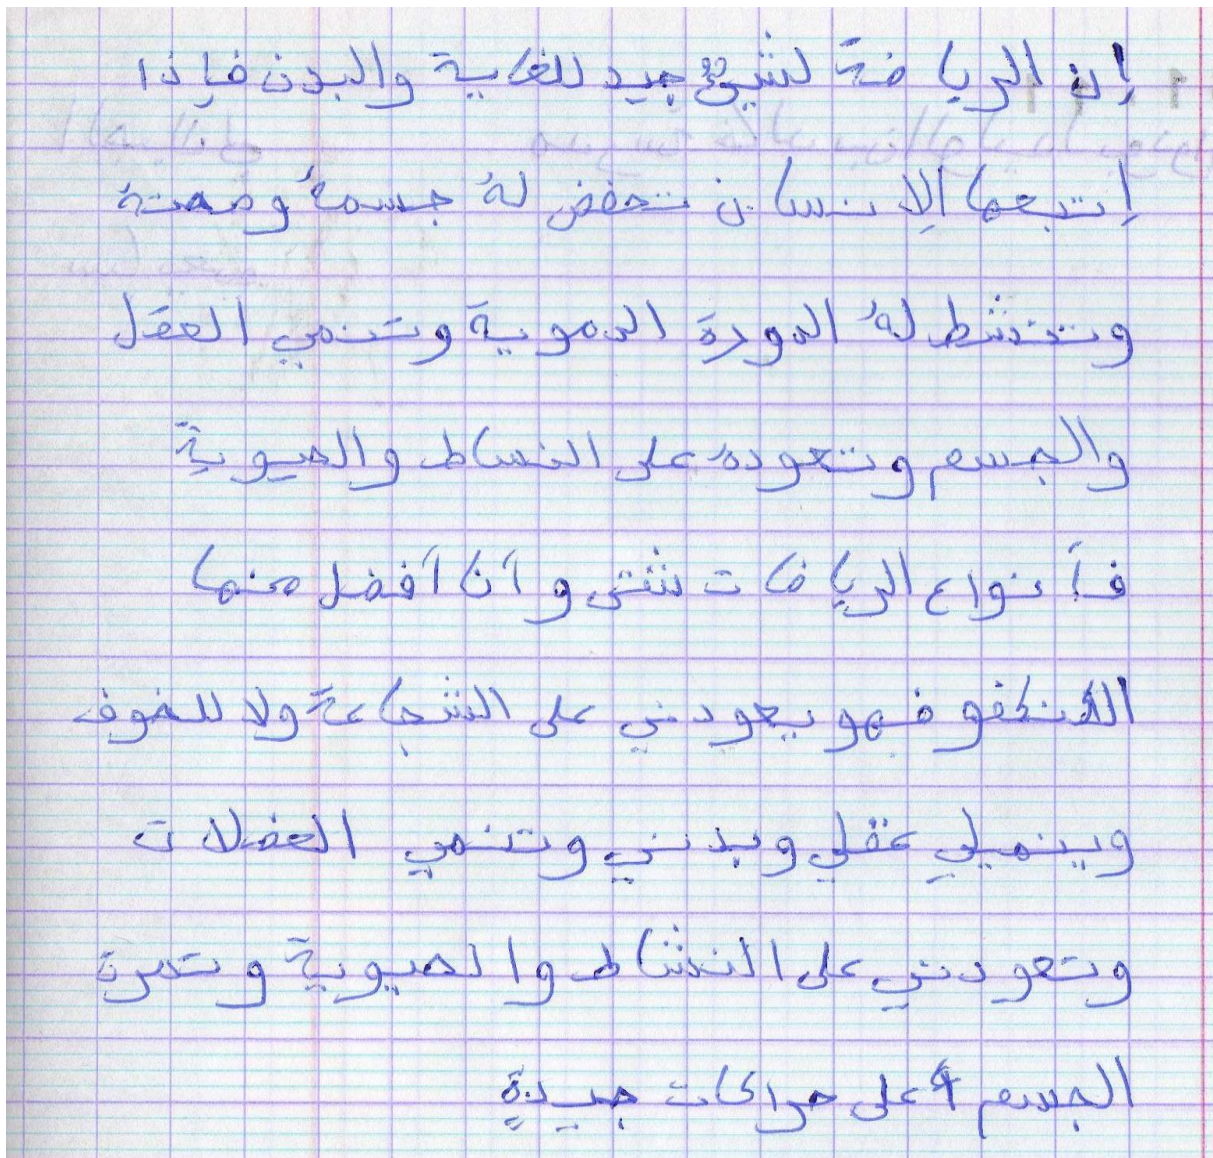 إن الرياضة لشيئ جيد للغاية والبدن فإذا
إتبعها الإنسان تحفض لهُ جسمهُ وصحتهُ
وتنشط لهُ الدورة الدموية وتنمي العقل
والجسم وتعودهُ على النساط والحيوية
فأنواع الرياضات شتى وأنا أفضل منها
الكنغفو فهو يعودني على الشجاعة ولا للخوف
وينميلي عقلي وبدني وتنمي العضلات
وتعودني على النشاط والحيوية وتمرة
الجسم على حراكات جيدة